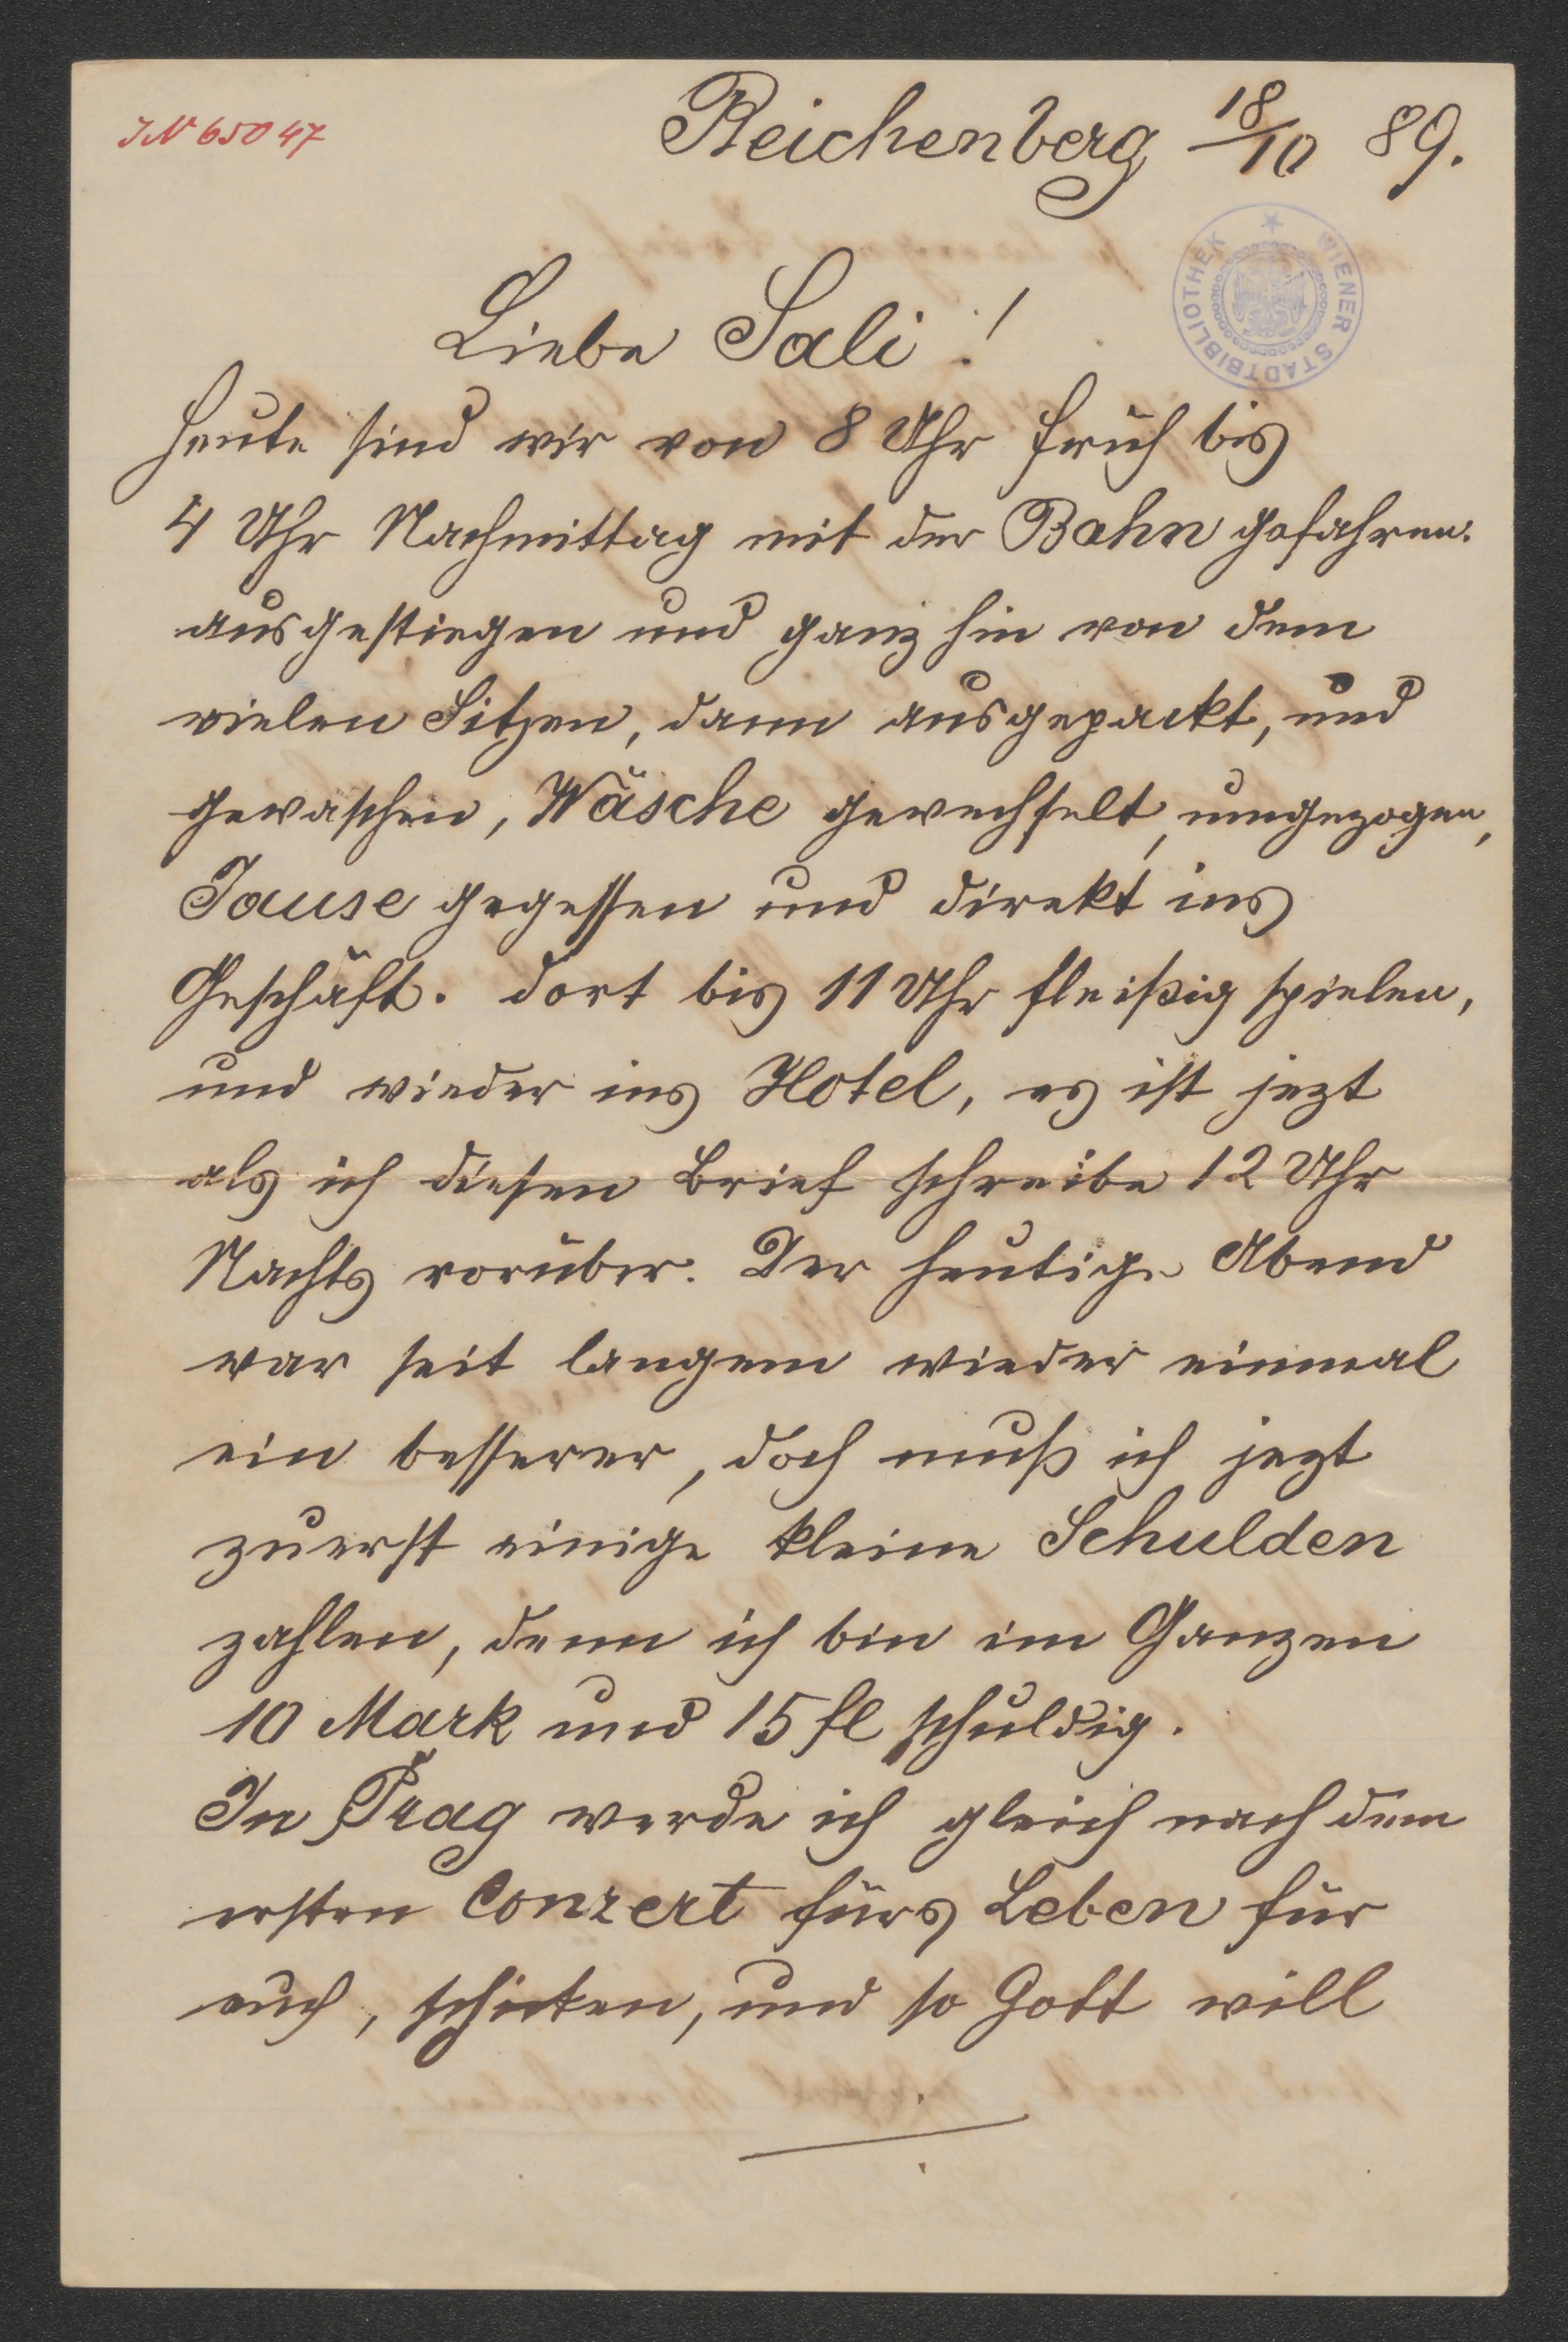 IN 65047
Reichenberg 18/10 89.
WIENER STADTBIBLIOTHEK
Liebe Sali!
Heute sind wir von 8 Uhr früh bis
4 Uhr Nachmittag mit der Bahn gefahren.
ausgestiegen und ganz hin von dem
vielen Sitzen, dann ausgepackt, und
gewaschen, Wäsche gewechselt, umgezogen,
Jause gegessen und direkt ins
Geschäft. dort bis 11 Uhr fleißig spielen,
und wieder ins Hotel, es ist jezt
als ich diesen Brief schreibe 12 Uhr
Nachts vorüber. Der heutige Abend
war seit langem wieder einmal
ein besserer, doch muß ich jezt
zuerst einige kleine Schulden
zahlen, denn ich bin im Ganzen
10 Mark und 15 fl schuldig.
In Prag werde ich gleich nach dem
ersten Conzert fürs Leben für
euch, schicken, und so Gott will